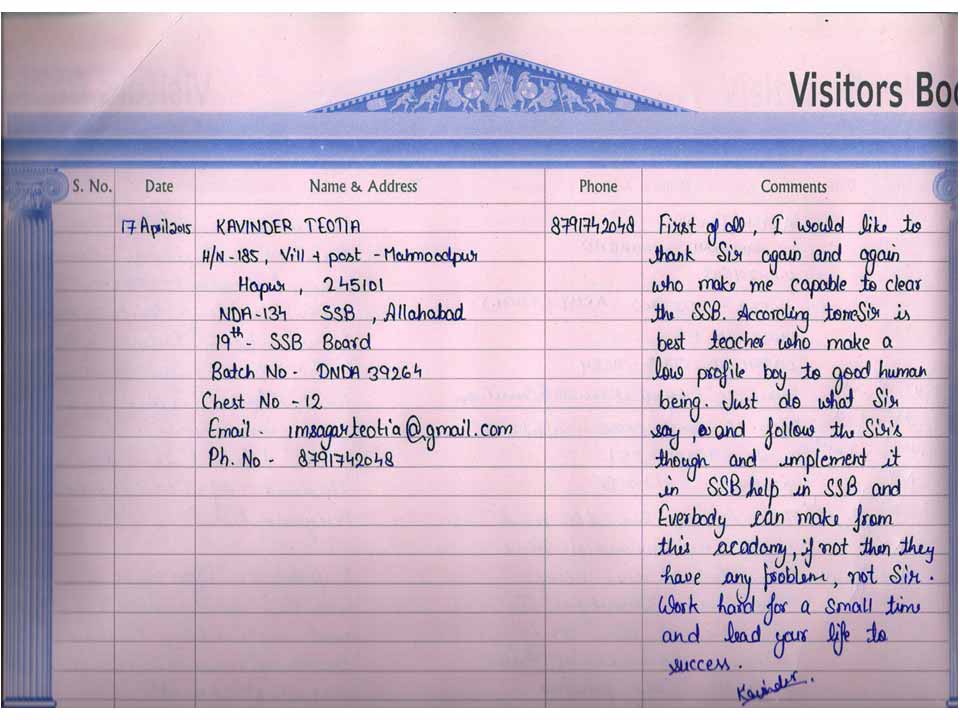 Visitors Bo
S. No. Date Name & Address Phone Comments
17 April 2015 KAVINDER TEOTIA 8791742048 First of all, I would like to
H/N-185, Vill + post - Mahmoodpur thank Sir again and again
Hapur, 245101 who make me capable to clear
NDA-134 SSB, Allahabad the SSB. According to me Sir is
19th - SSB Board best teacher who make a
Batch No - DNDA 39264 low profile boy to good human
Chest No - 12 being. Just do what Sir
Email - imsagarteotia@gmail.com say, and follow the Sir's
Ph. No - 8791742048 though and implement it
in SSB help in SSB and
Everbody can make from
this acadamy, if not then they
have any problem, not Sir.
Work hard for a small time
and lead your life to
success.
Kavinder.